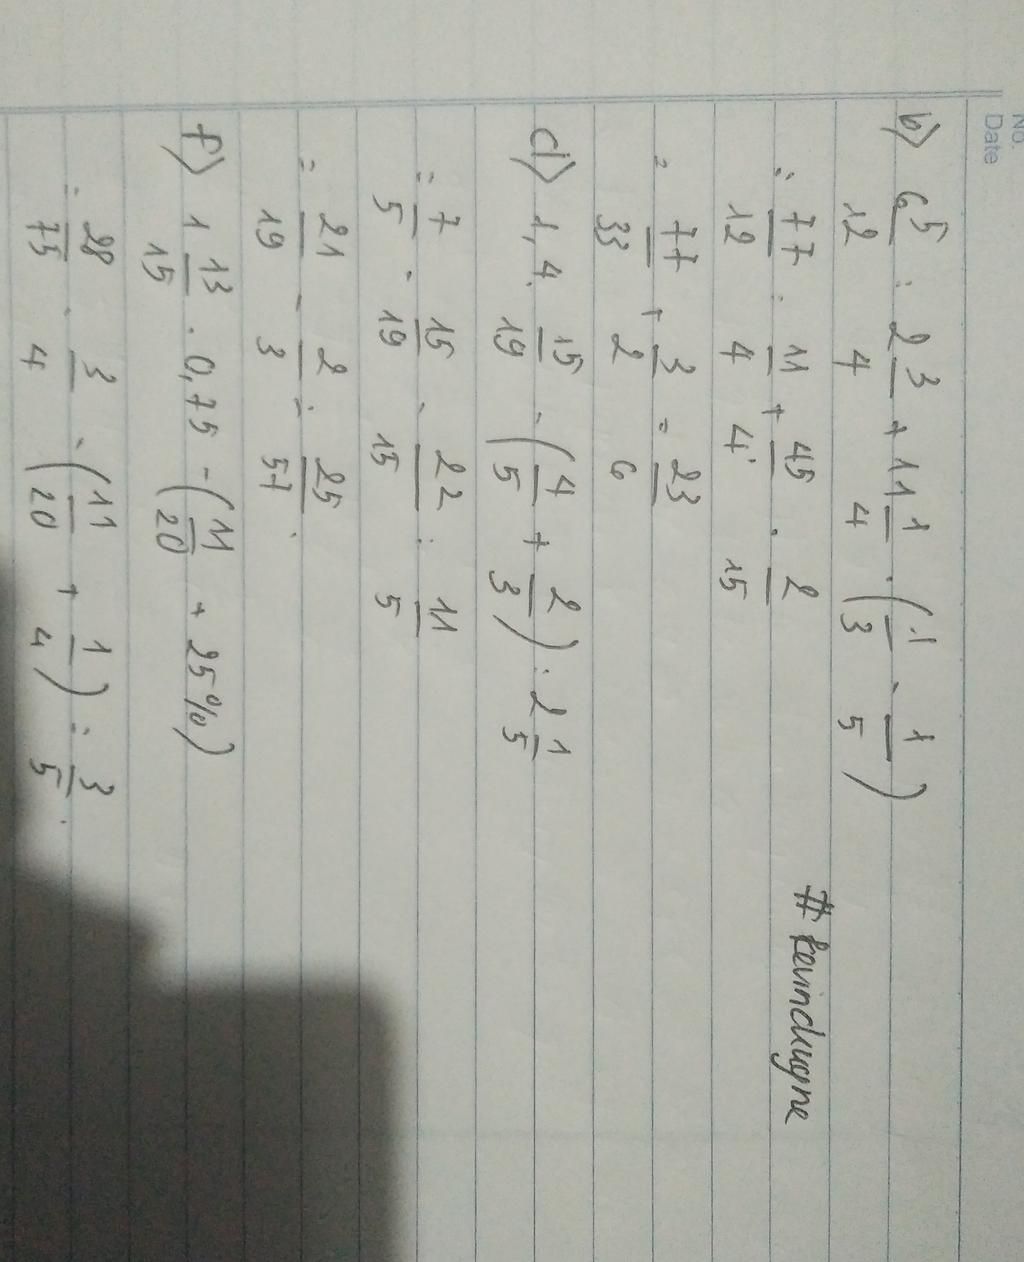 No.
Date
b) 6 5/12 : 2 3/4 + 11 1/4 . (1/3 - 1/5)
= 77/12 : 11/4 + 45/4 . 2/15
= 77/33 + 3/2 = 23/6
d) 1,4 . 15/19 - (4/5 + 2/3) : 2 1/5
= 7/5 . 15/19 - 22/15 : 11/5
= 21/19 - 2/3 = 25/57 .
f) 1 13/15 . 0,75 - (11/20 + 25%)
= 28/75 . 3/4 - (11/20 + 1/4) = 3/5 .